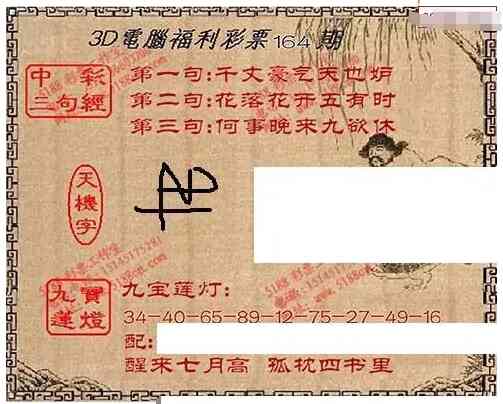 3D電腦福利彩票164期
中彩三句經
第一句:千丈豪气天也妒
第二句:花落花开五有时
第三句:何事晚来九欲休
天機字
九寶蓮燈
九宝莲灯:
34-40-65-89-12-75-27-49-16
配:
醒来七月高 孤枕四书里